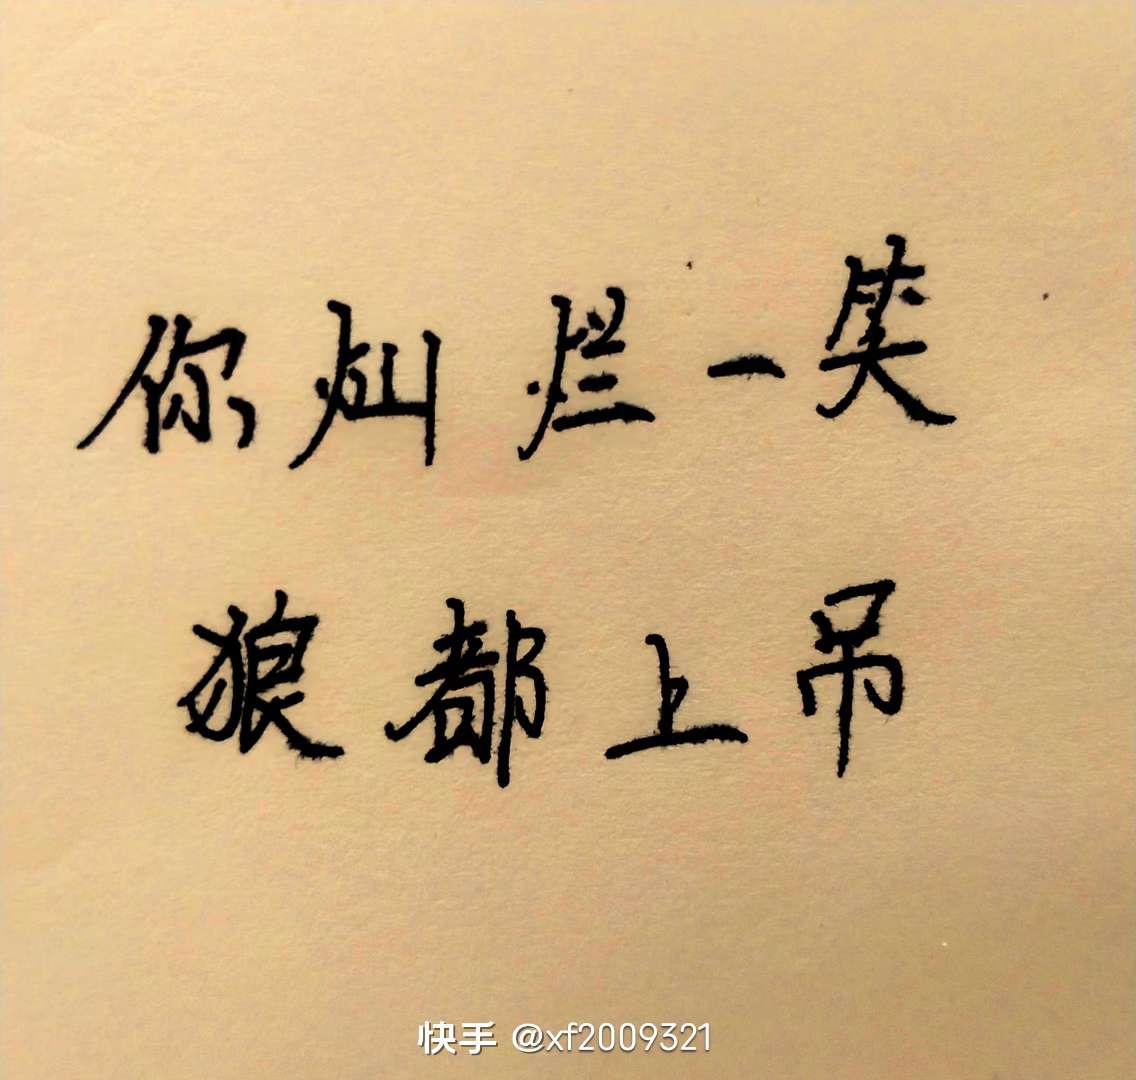 你灿烂一笑
狼都上吊
快手 @xf2009321